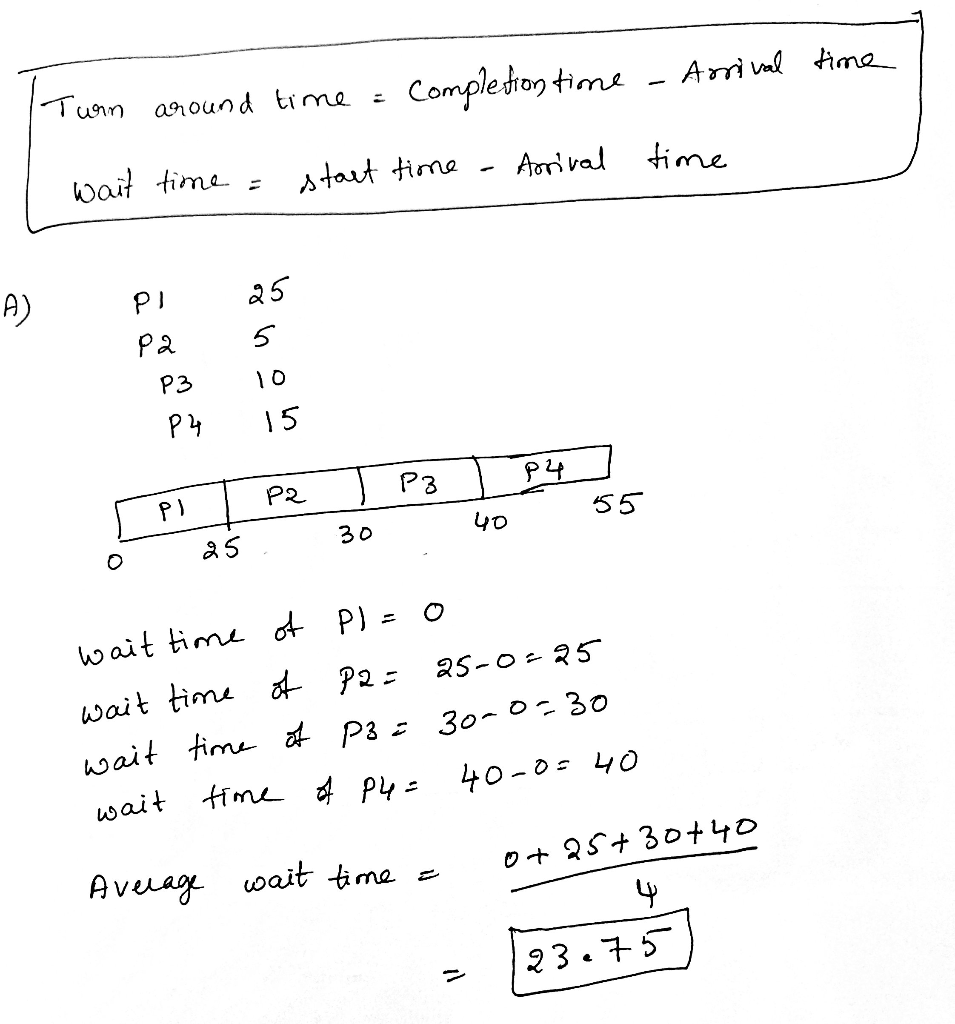 Turn around time = Completion time - Arrival time
Wait time = start time - Arrival time
A)
P1 25
P2 5
P3 10
P4 15
P1 P2 P3 P4
0 25 30 40 55
wait time of P1 = 0
wait time of P2 = 25-0=25
wait time of P3 = 30-0=30
wait time of P4 = 40-0=40
Average wait time = 0+25+30+40
4
= 23.75